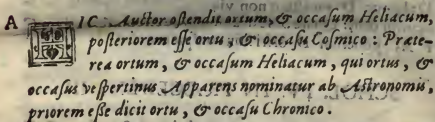 A HIC Auctor ostendit ortum, & occasum Heliacum,
posteriorem esse ortu, & occasu Cosmico: Præte-
rea ortum, & occasum Heliacum, qui ortus, &
occasus vespertinus Apparens nominatur ab Astronomis,
priorem esse dicit ortu, & occasu Chronico.